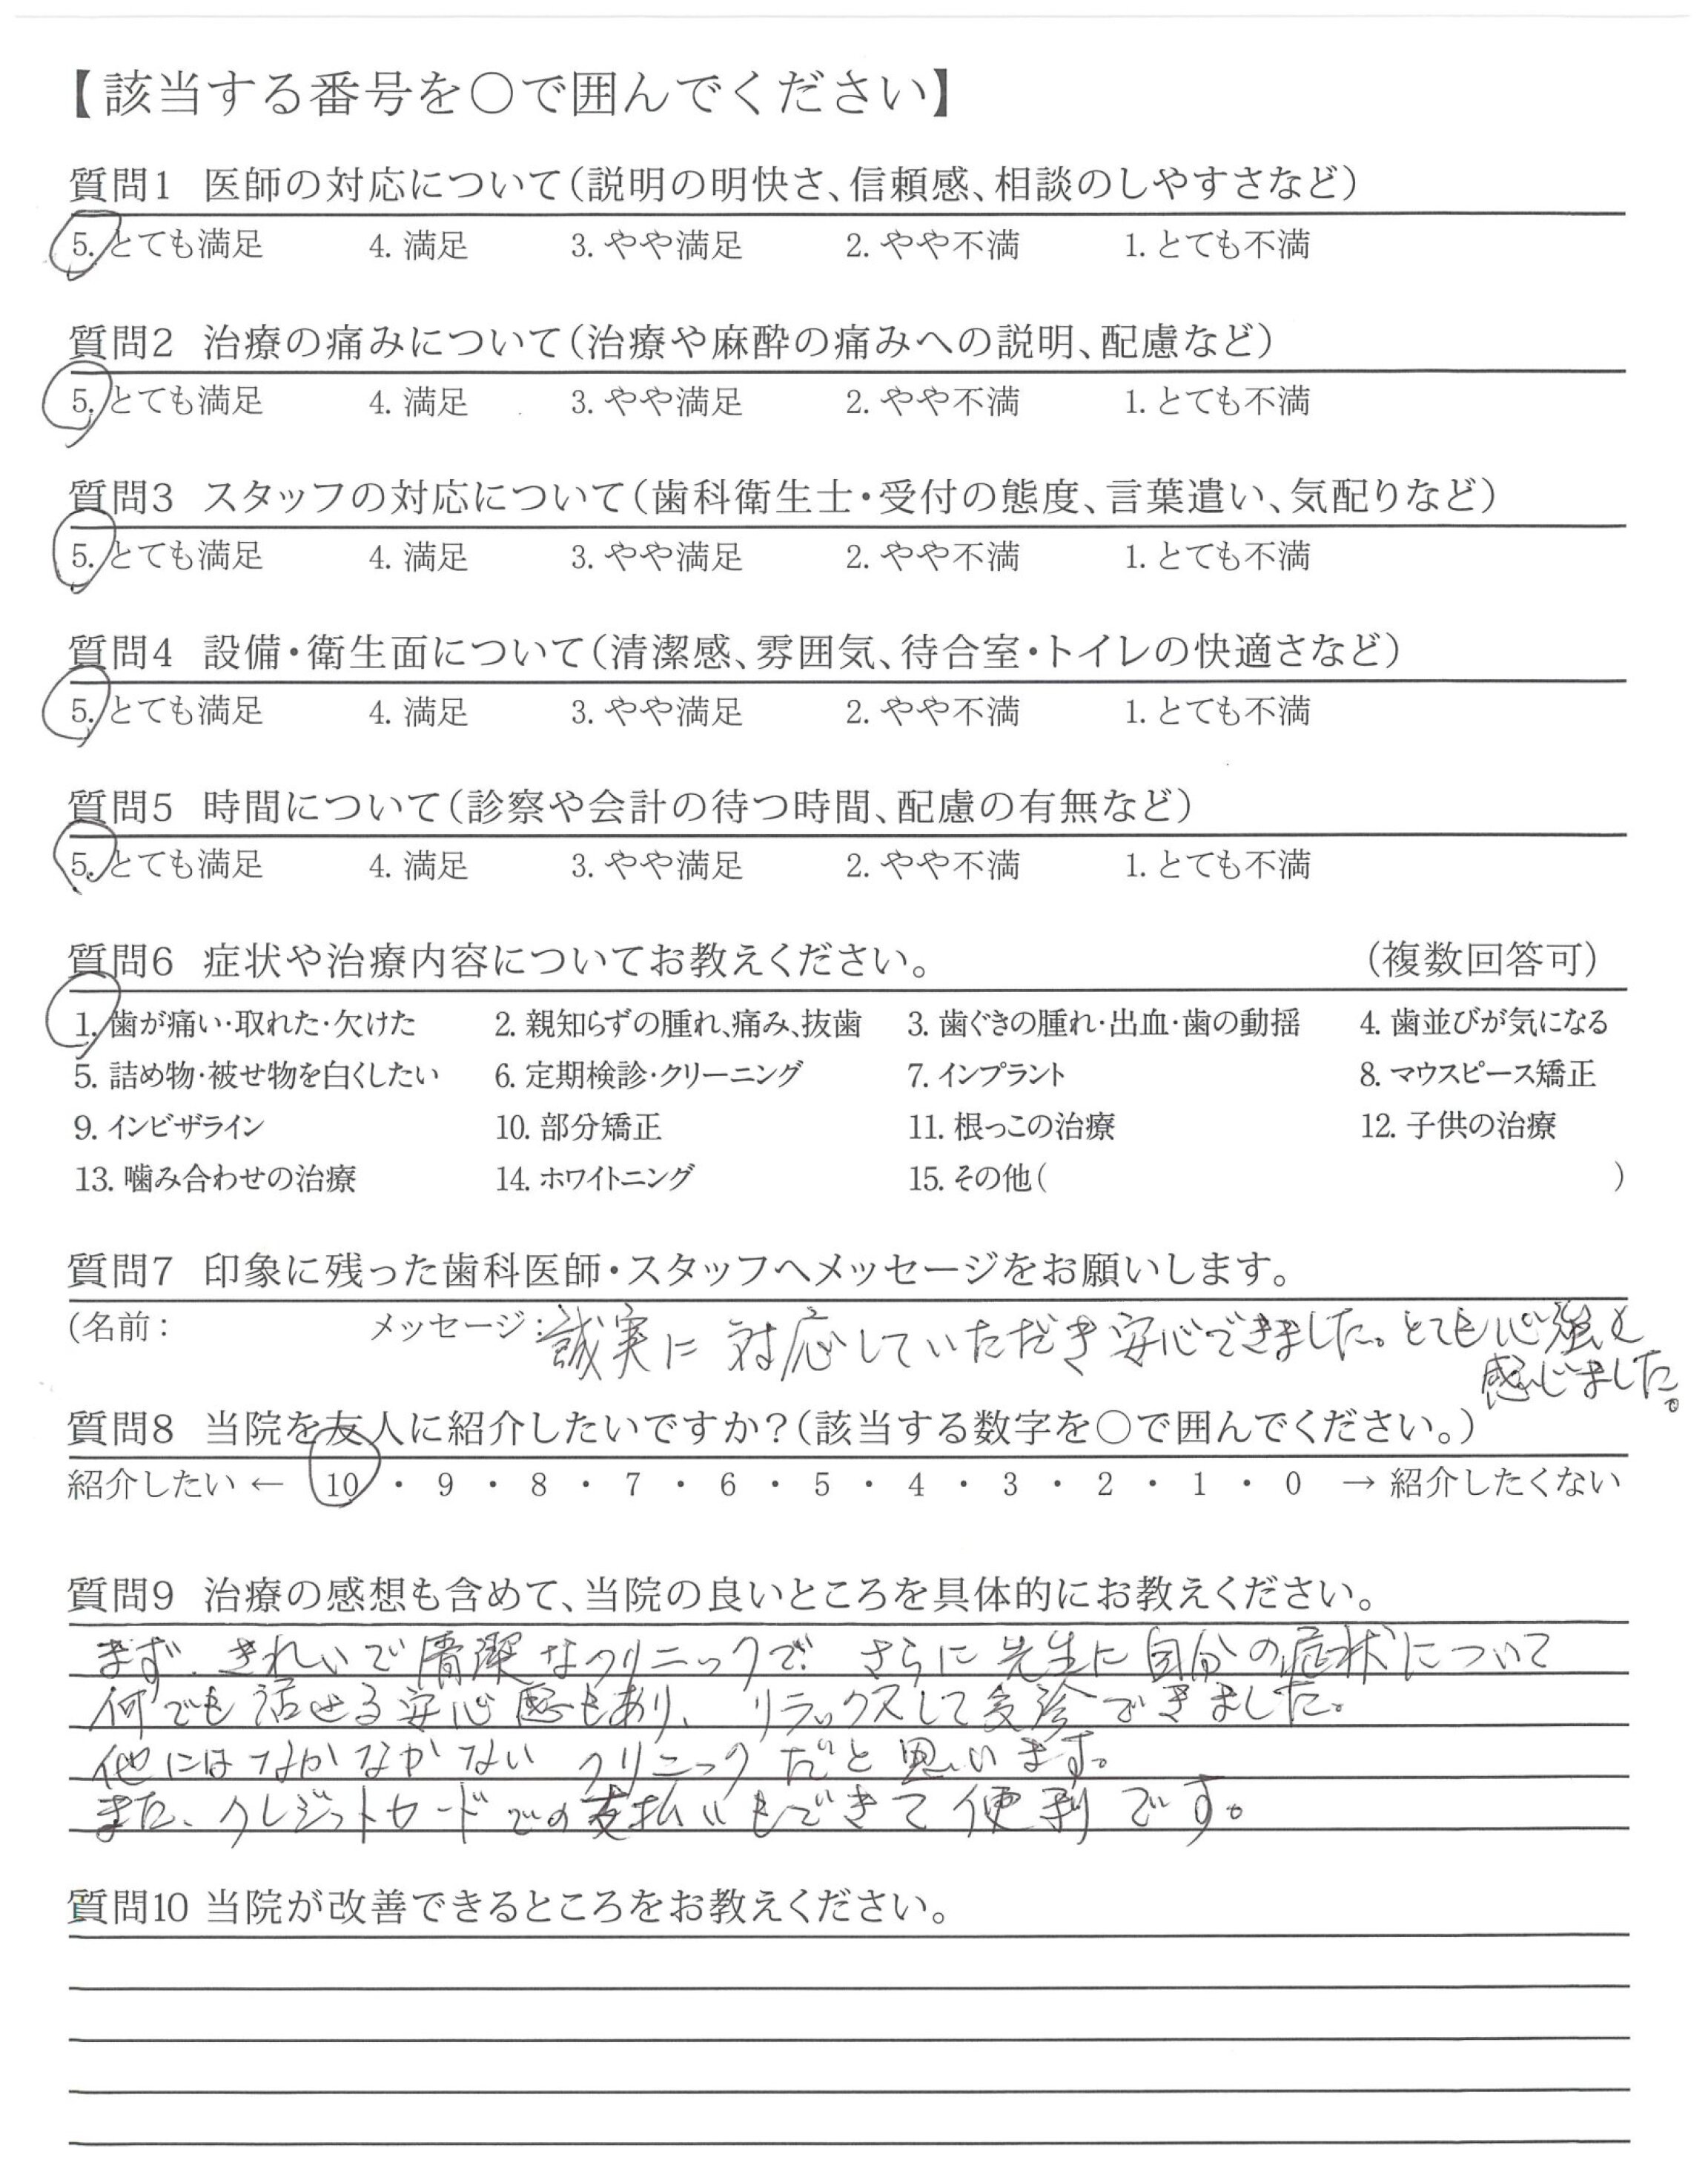 【該当する番号を○で囲んでください】
質問1 医師の対応について(説明の明快さ、信頼感、相談のしやすさなど)
5. とても満足 4. 満足 3. やや満足 2. やや不満 1. とても不満
質問2 治療の痛みについて(治療や麻酔の痛みへの説明、配慮など)
5. とても満足 4. 満足 3. やや満足 2. やや不満 1. とても不満
質問3 スタッフの対応について(歯科衛生士・受付の態度、言葉遣い、気配りなど)
5. とても満足 4. 満足 3. やや満足 2. やや不満 1. とても不満
質問4 設備・衛生面について(清潔感、雰囲気、待合室・トイレの快適さなど)
5. とても満足 4. 満足 3. やや満足 2. やや不満 1. とても不満
質問5 時間について(診察や会計の待つ時間、配慮の有無など)
5. とても満足 4. 満足 3. やや満足 2. やや不満 1. とても不満
質問6 症状や治療内容についてお教えください。 (複数回答可)
1. 歯が痛い・取れた・欠けた 2. 親知らずの腫れ、痛み、抜歯 3. 歯ぐきの腫れ・出血・歯の動揺 4. 歯並びが気になる
5. 詰め物・被せ物を白くしたい 6. 定期検診・クリーニング 7. インプラント 8. マウスピース矯正
9. インビザライン 10. 部分矯正 11. 根っこの治療 12. 子供の治療
13. 噛み合わせの治療 14. ホワイトニング 15. その他( )
質問7 印象に残った歯科医師・スタッフへメッセージをお願いします。
(名前: メッセージ: 誠実に対応していただき安心できました。とても心強く
感じました。
質問8 当院を友人に紹介したいですか?(該当する数字を○で囲んでください。)
紹介したい ← 10 ・ 9 ・ 8 ・ 7 ・ 6 ・ 5 ・ 4 ・ 3 ・ 2 ・ 1 ・ 0 → 紹介したくない
質問9 治療の感想も含めて、当院の良いところを具体的にお教えください。
まず、きれいで清潔なクリニックで、さらに先生に自分の症状について
何でも話せる安心感もあり、リラックスして受診できました。
他にはなかなかないクリニックだと思います。
また、クレジットカードでの支払いもできて便利です。
質問10 当院が改善できるところをお教えください。